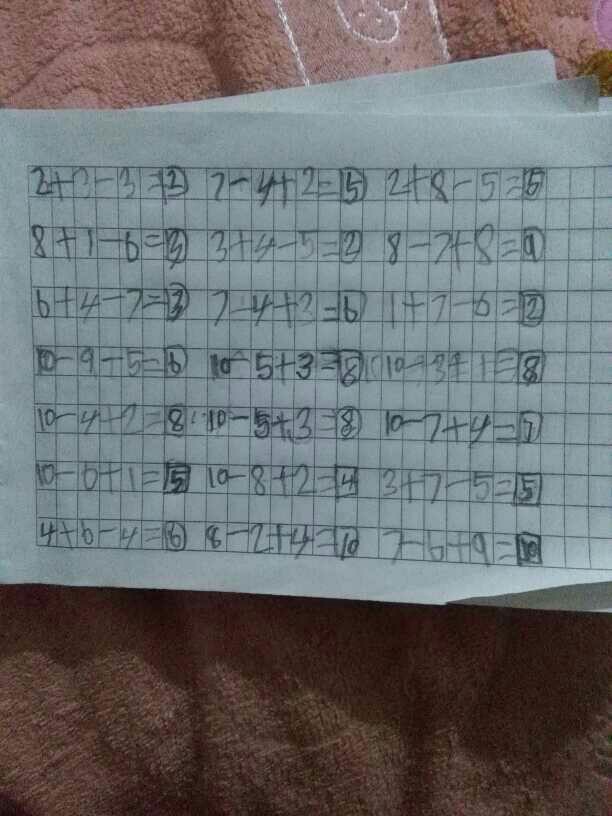 2+3-3=2 7-4+2=5 2+8-5=5
8+1-6=3 3+4-5=2 8-7+8=9
6+4-7=3 7-4+3=6 1+7-6=2
10-9+5=6 10-5+3=8 10-3+1=8
10-4+2=8 10-5+3=8 10-7+4=7
10-6+1=5 10-8+2=4 3+7-5=5
4+6-4=6 8-2+4=10 7-6+9=10